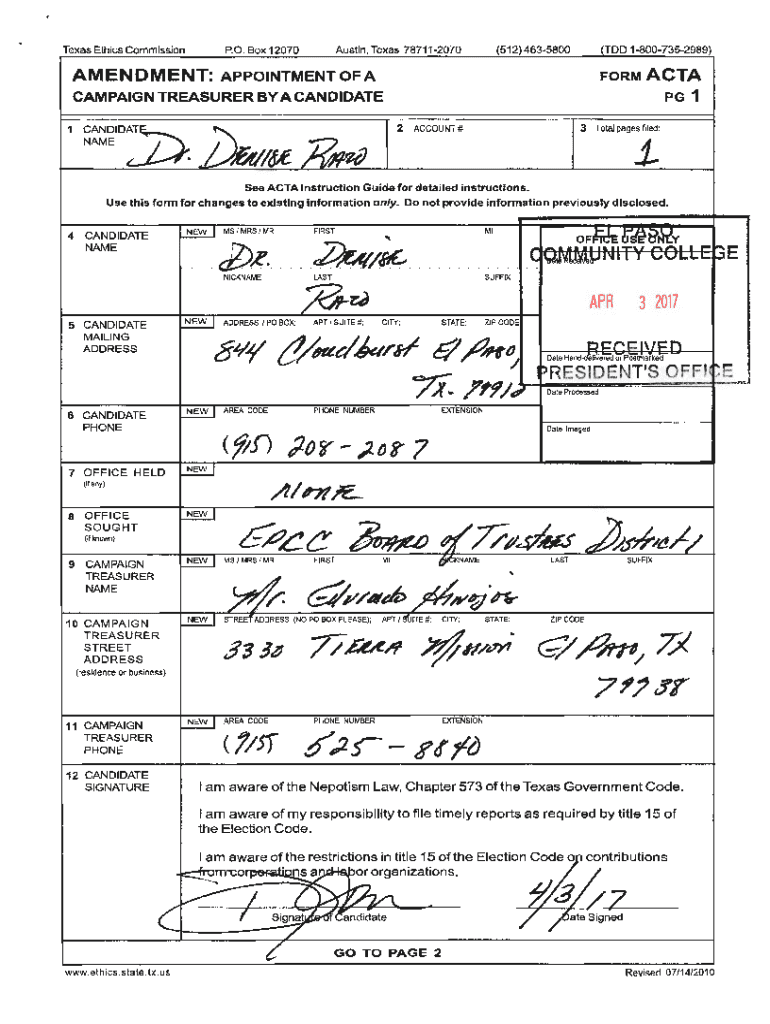 Texas Ethics Commission P.O. Box 12070 Austin, Texas 78711-2070 (512) 463-5800 (TDD 1-800-735-2989)
AMENDMENT: APPOINTMENT OF A FORM ACTA
CAMPAIGN TREASURER BY A CANDIDATE PG 1
1 CANDIDATE NAME
Dr. Denise Razo
2 ACCOUNT #
3 Total pages filed:
1
See ACTA Instruction Guide for detailed instructions.
Use this form for changes to existing information only. Do not provide information previously disclosed.
4 CANDIDATE NAME
NEW MS / MRS / MR FIRST MI
Dr. Denise
NICKNAME LAST SUFFIX
Razo
OFFICE USE ONLY
Date Received
EL PASO
COMMUNITY COLLEGE
APR 3 2017
RECEIVED
PRESIDENT'S OFFICE
Date Hand-delivered or Postmarked
Date Processed
Date Imaged
5 CANDIDATE MAILING ADDRESS
NEW ADDRESS / PO BOX; APT / SUITE #; CITY; STATE; ZIP CODE
844 Cloudburst El Paso,
TX. 79912
6 CANDIDATE PHONE
NEW AREA CODE PHONE NUMBER EXTENSION
(915) 208-2087
7 OFFICE HELD
(if any)
NEW
None
8 OFFICE SOUGHT
(if known)
NEW
EPCC Board of Trustees District 1
9 CAMPAIGN TREASURER NAME
NEW MS / MRS / MR FIRST MI NICKNAME LAST SUFFIX
Mr. Edvrado Hinojos
10 CAMPAIGN TREASURER STREET ADDRESS
(residence or business)
NEW STREET ADDRESS (NO PO BOX PLEASE); APT / SUITE #; CITY; STATE; ZIP CODE
3330 Tierra Mission El Paso, TX
79938
11 CAMPAIGN TREASURER PHONE
NEW AREA CODE PHONE NUMBER EXTENSION
(915) 525-8840
12 CANDIDATE SIGNATURE
I am aware of the Nepotism Law, Chapter 573 of the Texas Government Code.
I am aware of my responsibility to file timely reports as required by title 15 of
the Election Code.
I am aware of the restrictions in title 15 of the Election Code on contributions
from corporations and labor organizations.
4/3/17
Signature of Candidate Date Signed
GO TO PAGE 2
www.ethics.state.tx.us Revised 07/14/2010